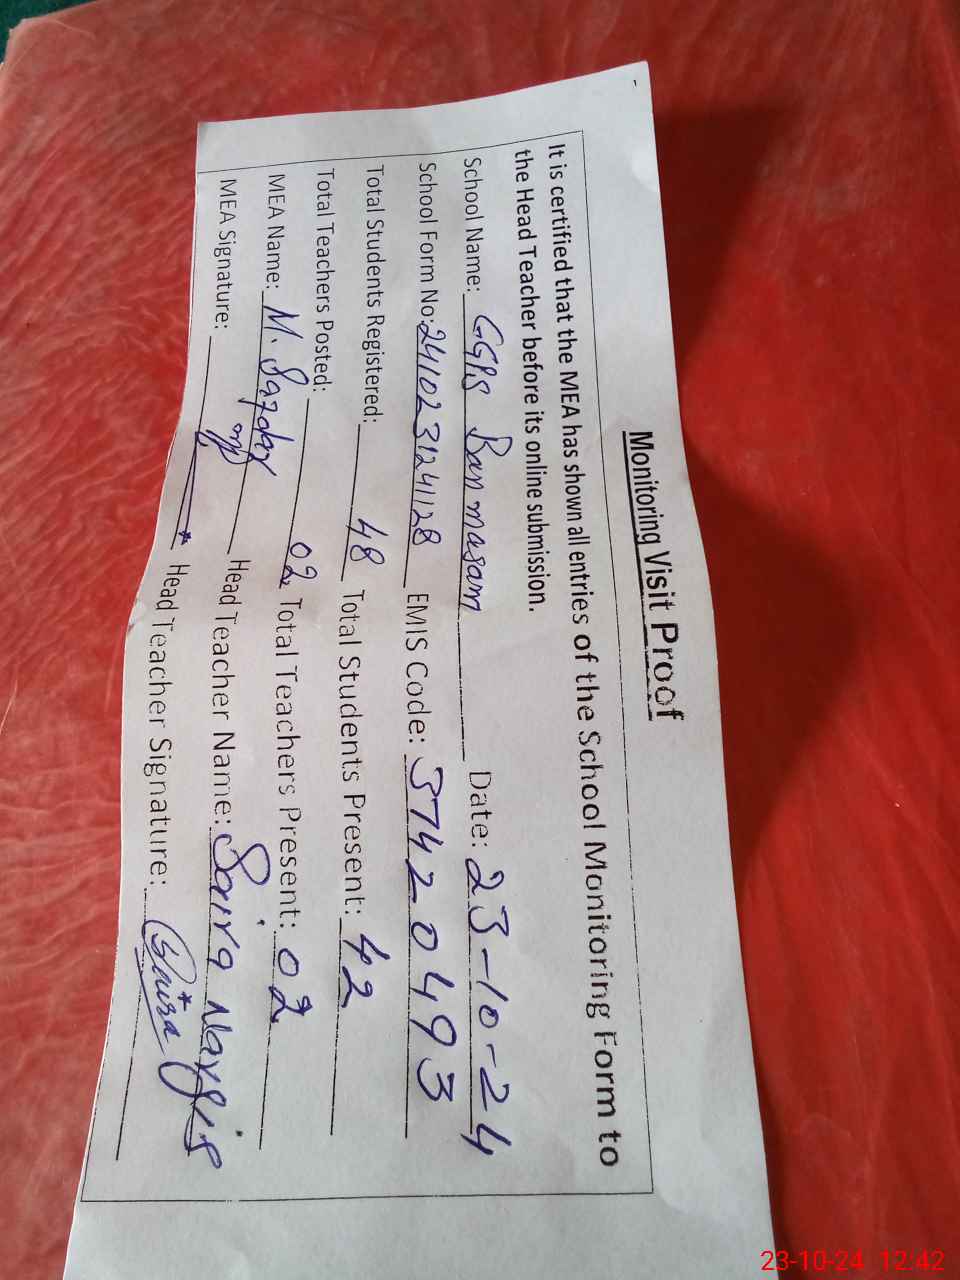 Monitoring Visit Proof
It is certified that the MEA has shown all entries of the School Monitoring Form to
the Head Teacher before its online submission.
School Name: GGPS Ban masam Date: 23-10-24
School Form No: 2410231241128 EMIS Code: 37420493
Total Students Registered: 48 Total Students Present: 42
Total Teachers Posted: 02 Total Teachers Present: 02
MEA Name: M. Head Teacher Name: Saira Nargis
MEA Signature: Head Teacher Signature: Saira
23-10-24 12:42